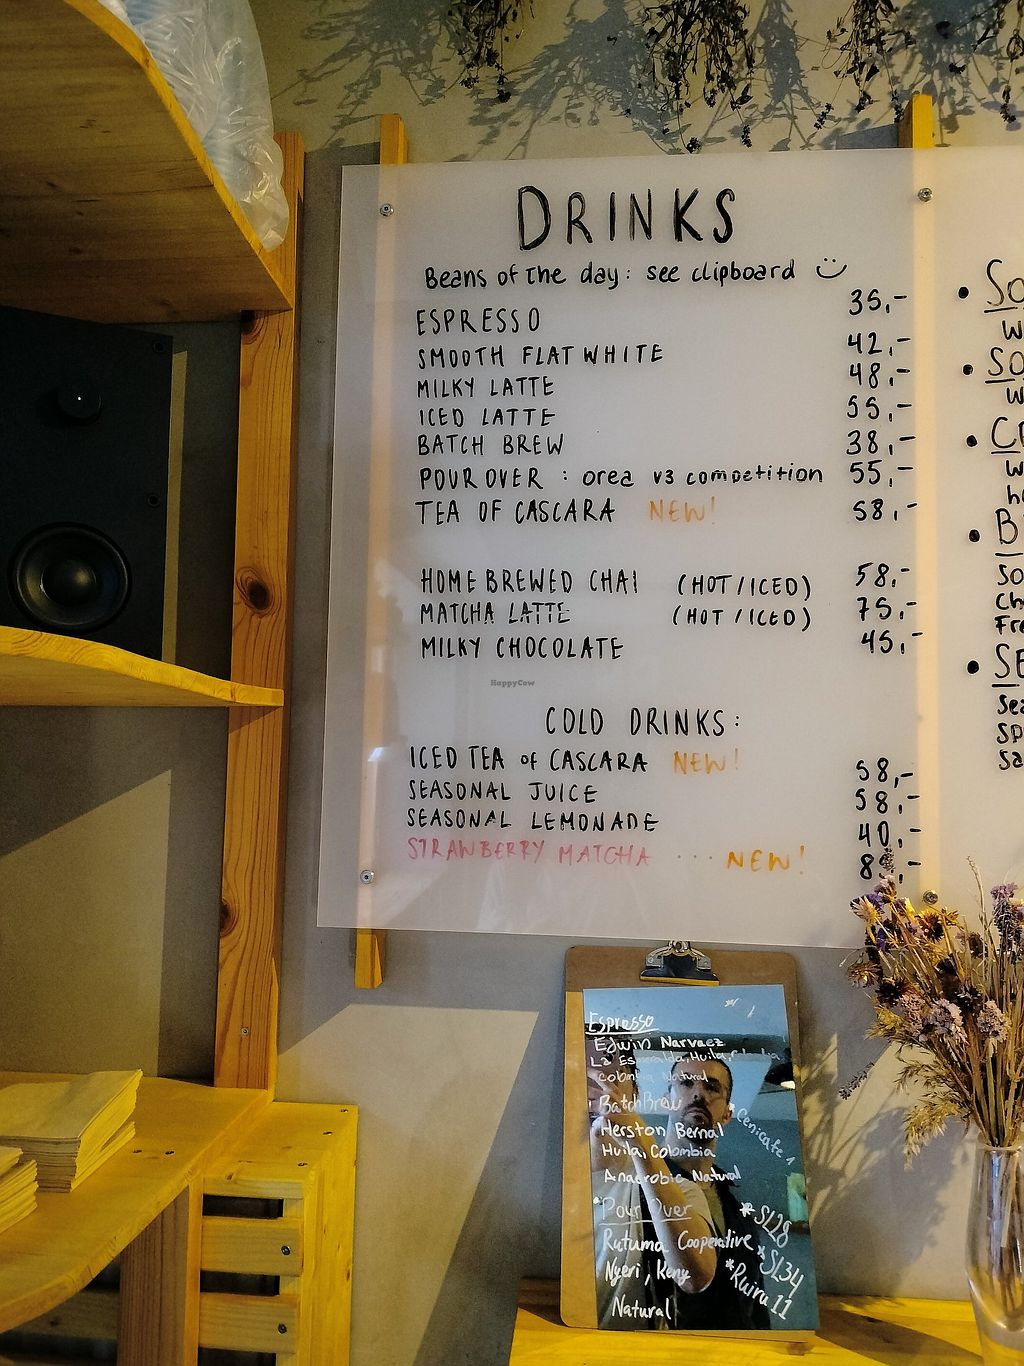 DRINKS
Beans of the day: see clipboard
ESPRESSO 35,-
SMOOTH FLAT WHITE 42,-
MILKY LATTE 48,-
ICED LATTE 55,-
BATCH BREW 38,-
POUR OVER : orea v3 competition 55,-
TEA OF CASCARA NEW! 58,-
HOME BREWED CHAI (HOT/ICED) 58,-
MATCHA LATTE (HOT/ICED) 75,-
MILKY CHOCOLATE 45,-
HappyCow
COLD DRINKS:
ICED TEA of CASCARA NEW! 58,-
SEASONAL JUICE 58,-
SEASONAL LEMONADE 40,-
STRAWBERRY MATCHA ... NEW!
Espresso
Edwin Narvaez
La Esmeralda, Huila, Colombia
Natural
Batch Brew
Herston Bernal
Huila, Colombia
Anaerobic Natural
Pour Over
Rutuma Cooperative
Nyeri, Keny
Natural
*SL28
*SL34
*Ruiru 11